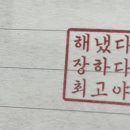 해냈다
장하다
최고야